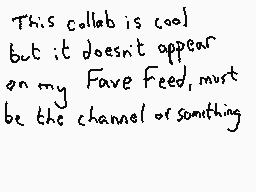 This collab is cool
but it doesn't appear
on my Fave Feed, must
be the channel or something